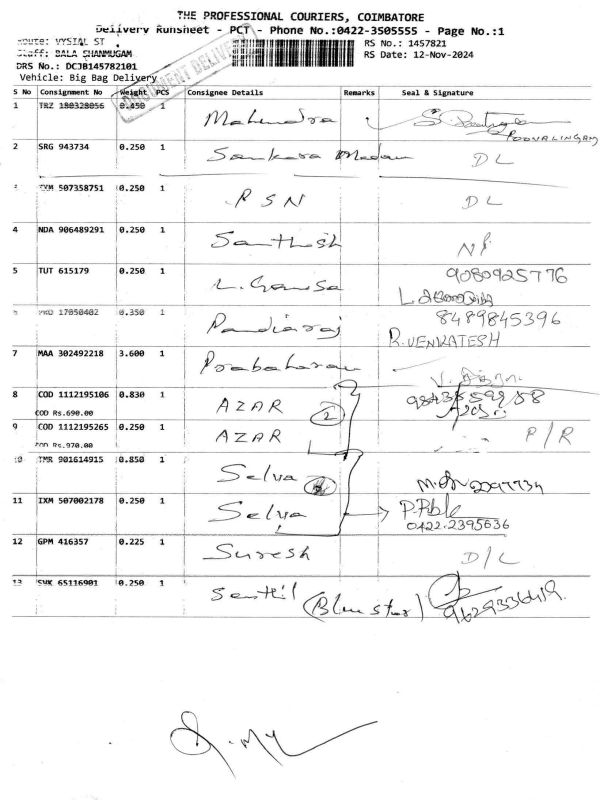 THE PROFESSIONAL COURIERS, COIMBATORE
Delivery Runsheet - PCT - Phone No.:0422-3505555 - Page No.:1
Route: VYSIAL ST
RS No.: 1457821
Staff: BALA SHANMUGAM
RS Date: 12-Nov-2024
DRS No.: DCJB145782101
Vehicle: Big Bag Delivery
S No Consignment No Weight PCS Consignee Details Remarks Seal & Signature
1 TRZ 180328056 0.450 1 Mahendra
POOVALINGAM
2 SRG 943734 0.250 1 Sankara Madam DL
507358751 0.250 1 PSN DL
4 NDA 906489291 0.250 1 Santhosh
5 TUT 615179 0.250 1 L. Ganesa 9080925776
17050402 0.350 1 Pandiaraj 8489845396
R.VENKATESH
7 MAA 302492218 3.600 1 Prabaharan
8 COD 1112195106 0.830 1 AZAR 2
COD Rs.690.00
9 COD 1112195265 0.250 1 AZAR P/R
COD Rs.970.00
10 TMR 901614915 0.850 1 Selva
11 IXM 507002178 0.250 1 Selva
0422-2395636
12 GPM 416357 0.225 1 Suresh D/L
13 65116901 0.250 1 Senthil (Blue star) 9629336419.